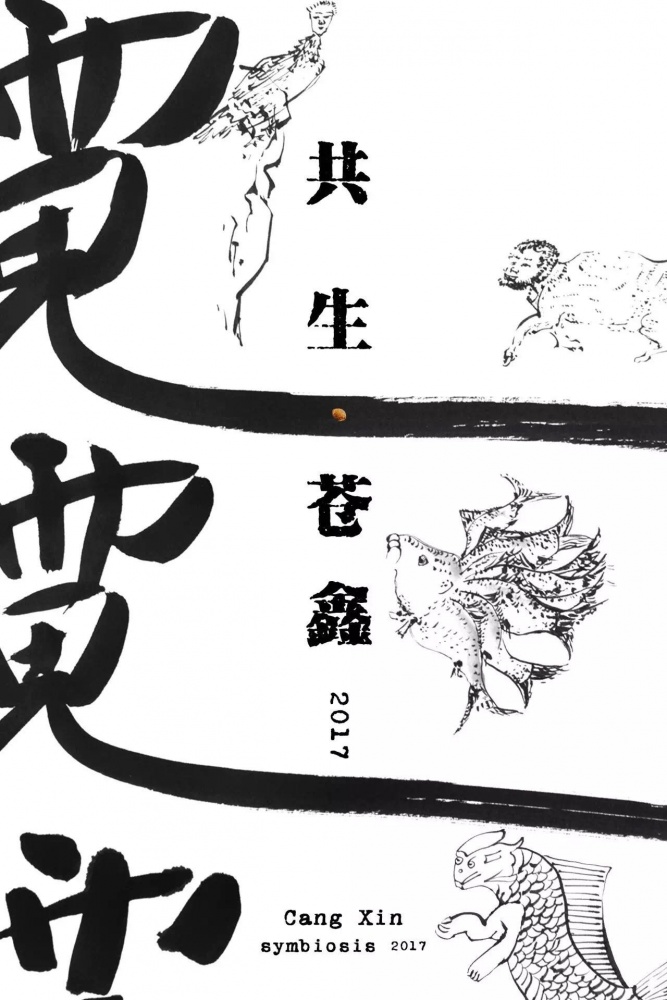 共生 苍鑫 2017
Cang Xin
symbiosis 2017